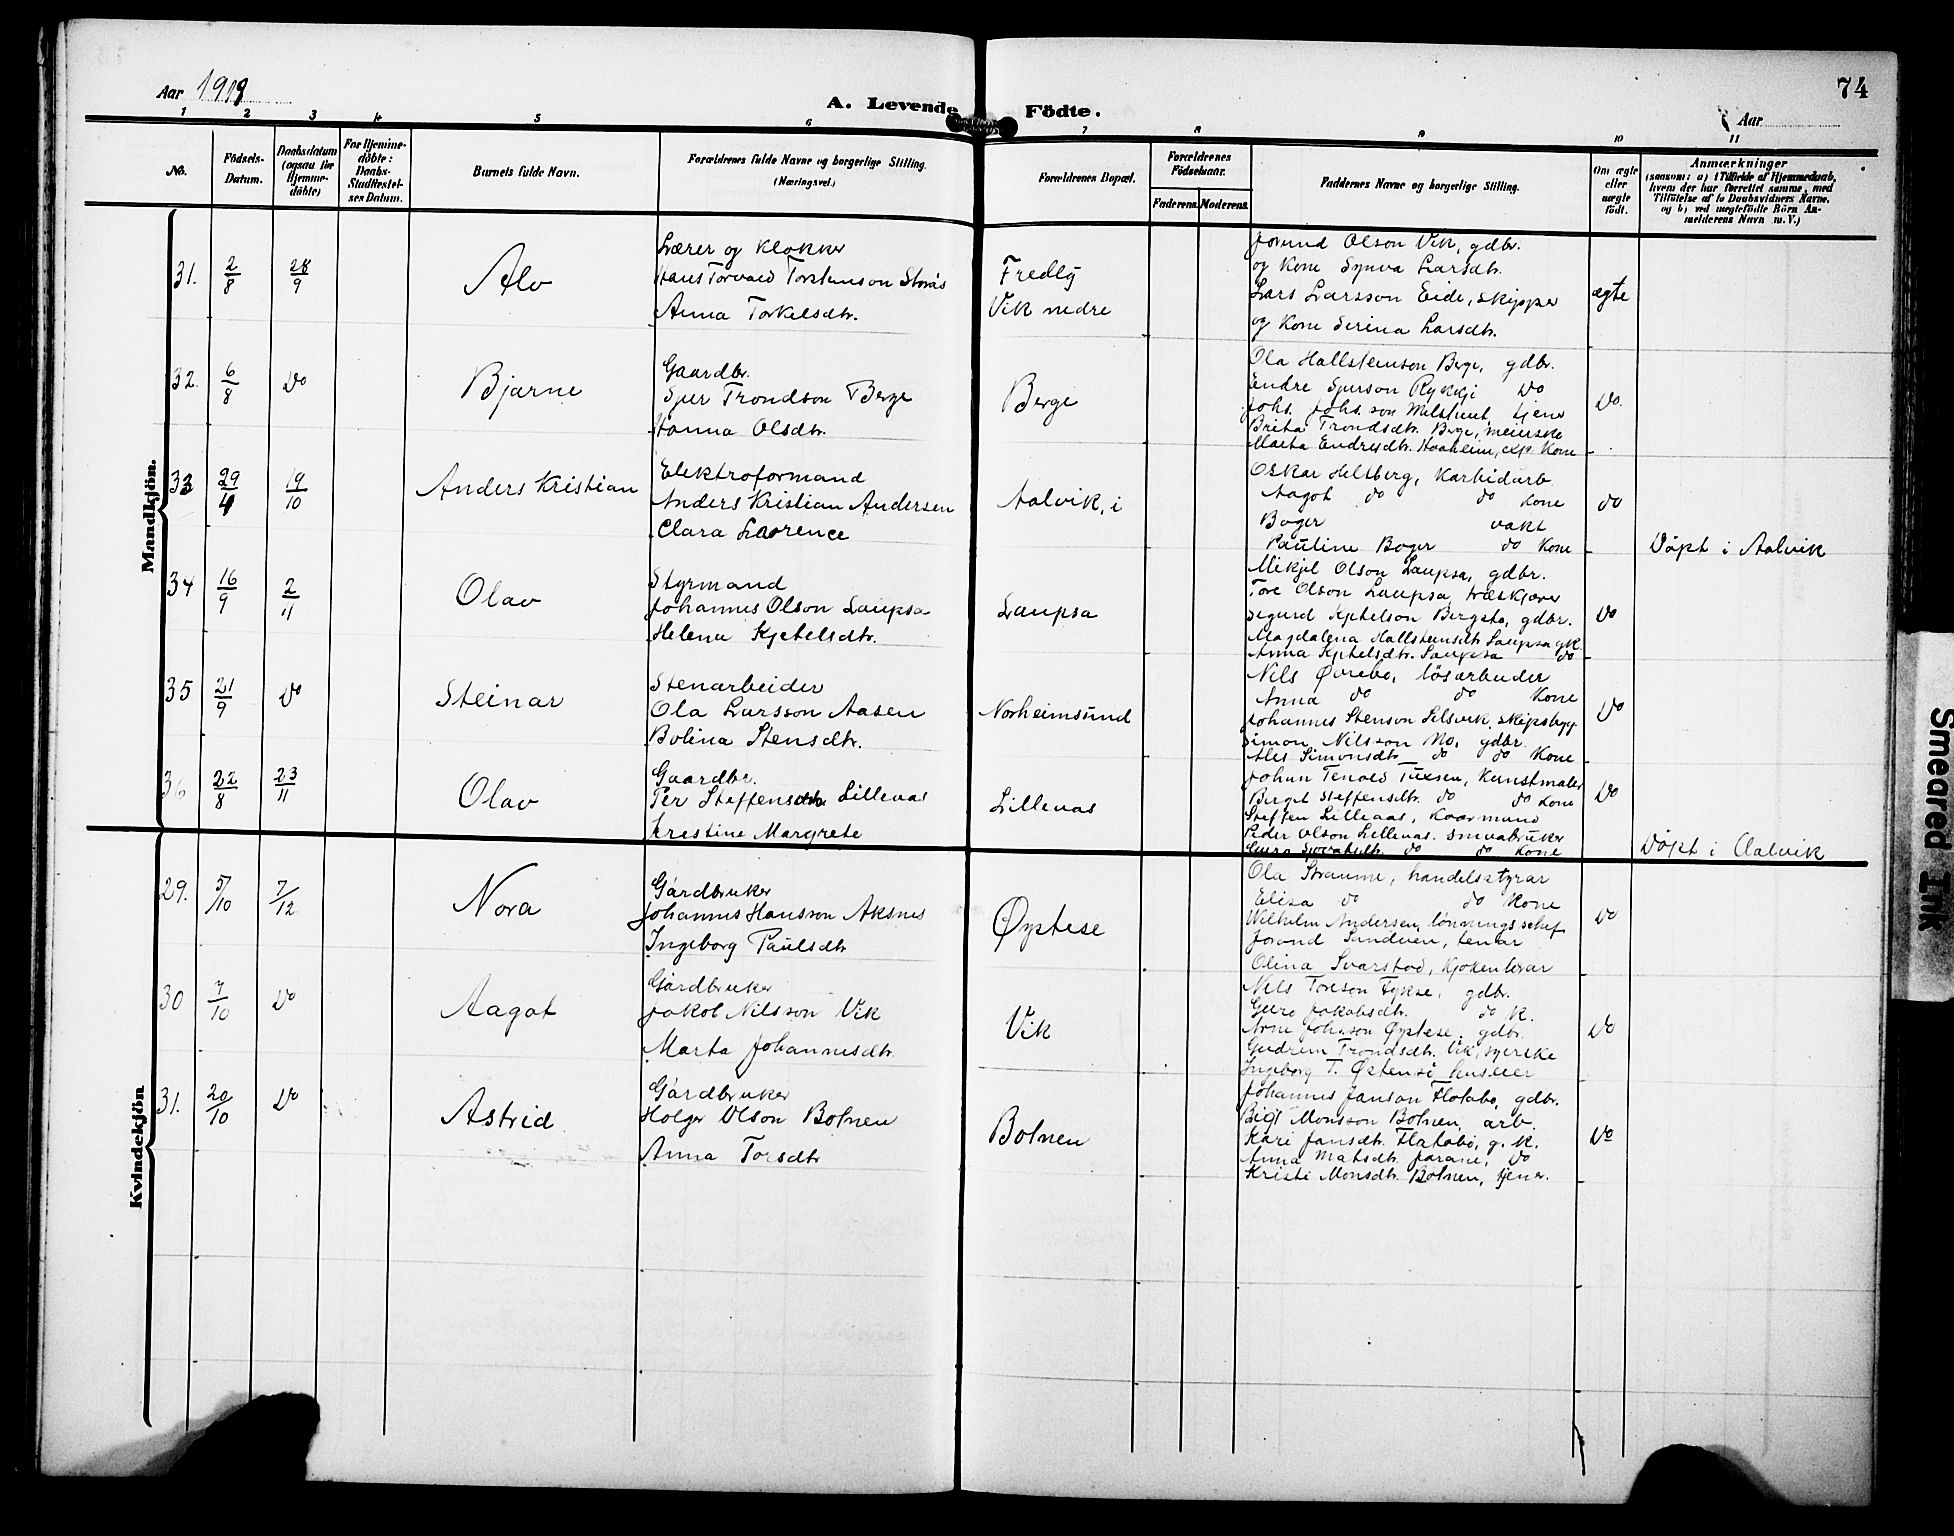 Aar 1919
A. Levende Födte.
74
Aar
1 2 3 4 5 6 7 8 9 10 11
No.
Födsels-Datum.
Daabsdatum (ogsaa for Hjemme-döbte)
For Hjemme-döbte: Daabs-Stadfestel-ses Datum.
Barnets fulde Navn.
Forældrenes fulde Navne og borgerlige Stilling. (Næringsvei.)
Forældrenes Bopæl.
Forældrenes Födselsaar.
Faderens. Moderens.
Faddernes Navne og borgerlige Stilling.
Om ægte eller uægte födt.
Anmærkninger
(saasom: a) i Tilfælde af Hjemmedaab, hvem der har forrettet samme, med Tilföielse af to Daabsvidners Navne, og b) ved uægtefödte Börn An-melderens Navn m. V.)
Mandkjön.
31. 2/8 28/9 Alv
Lærer og klokker
Hans Torvald Torsteinson Storås
Anna Torkelsdtr.
Fredly
Vik nedre
Jorund Olson Vik, gdbr.
og kone Synva Larsdtr.
Lars Larsson Eide, skipper
og kone Serina Larsdtr.
ægte
32. 6/8 do Bjarne
Gaardbr.
Sjur Trondson Berge
Hanna Olsdtr.
Berge
Ola Hallsteinson Berge, gdbr.
Endre Sjurson Rykkji do
Johs. Johs.son Melstveit, tjener
Brita Trondsdtr. Berge, meierske
Marta Endresdtr. Haaheim, exp. kone
do.
33 29/4 19/10 Anders Kristian
Elektroformand
Anders Kristian Andersen
Clara Laorence
Aalvik, i
Oskar Helsberg, Karbidarb.
Aagot do do kone
Boger vakt
Pauline Boger do kone
do
Döpt i Aalvik
34 16/9 2/11 Olav
Styrmand
Johannes Olson Laupsa
Helena Kjetelsdtr.
Laupsa
Mikjel Olson Laupsa, gdbr.
Tore Olson Laupsa, træskjærer
Sigurd Kjetelson Bergstø, gdbr.
Magdalena Hallsteinsdtr Laupsa gk
Anna Kjetelsdtr. Laupsa do
do
35 21/9 do Steinar
Stenarbeider
Ola Larsson Aasen
Bolina Stensdtr.
Norheimsund
Nils Øvrebø, løsarbeider
Anna do do kone
Johannes Stenson Selsvik, skipsbygg.
Simon Nilsson Mo, gdbr.
Alis Simonsdtr do do kone
do
36 22/8 23/11 Olav
Gaardbr.
Per Steffensen Lilleaas
Kristine Margrete
Lilleaas
Johan Tenold Tuxsen, Kunstmaler
Berget Steffensdtr. do do kone
Steffen Lilleaas, Kaarmand
Peder Olson Lilleaas. smaabruker
Guro Sjovatsdtr. do do kone
do
Döpt i Aalvik
Kvindekjön
29. 5/10 7/12 Nora
Gardbruker
Johannes Hansson Aksnes
Ingeborg Paulsdtr
Øystese
Ola Straume, handelsstyrar
Elisa do do kone
Wilhelm Andersen, lønningsschef
Jorand Sandven, tenar
Olina Svarstad, kjøkenlærar
do
30 7/10 do Aagot
Gardbruker
Jakob Nilsson Vik
Marta Johannesdtr.
Vik
Nils Toreson Fykse, gdbr.
Guro Jakobsdtr. do k.
Arne Johsson Øystese, gdbr.
Gudrun Trondsdtr. Vik, syerske
Ingeborg T. Øystese
do
31. 20/10 do Astrid
Gardbruker
Holger Olson Botnen
Anna Torsdtr
Botnen
Johannes Janson Flotabø, gdbr.
Monsson Botnen, arb.
Kari Jansdtr. Flatabø, g. k.
Anna Matsdtr. do
Kristi Monsdtr. Botnen, tjener.
do
Smeared Ink